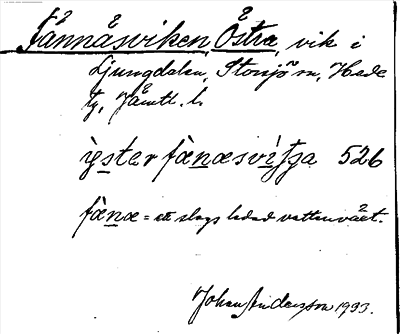 Fännåsviken, Östra, vik i
Ljungdalen, Storsjö sn, Hede
tg, Jämtl. l.
ìɛster fänæsvìʃga 526
fänæ = ett slags ledad vattenväxt.
Johan Andersson 1933.